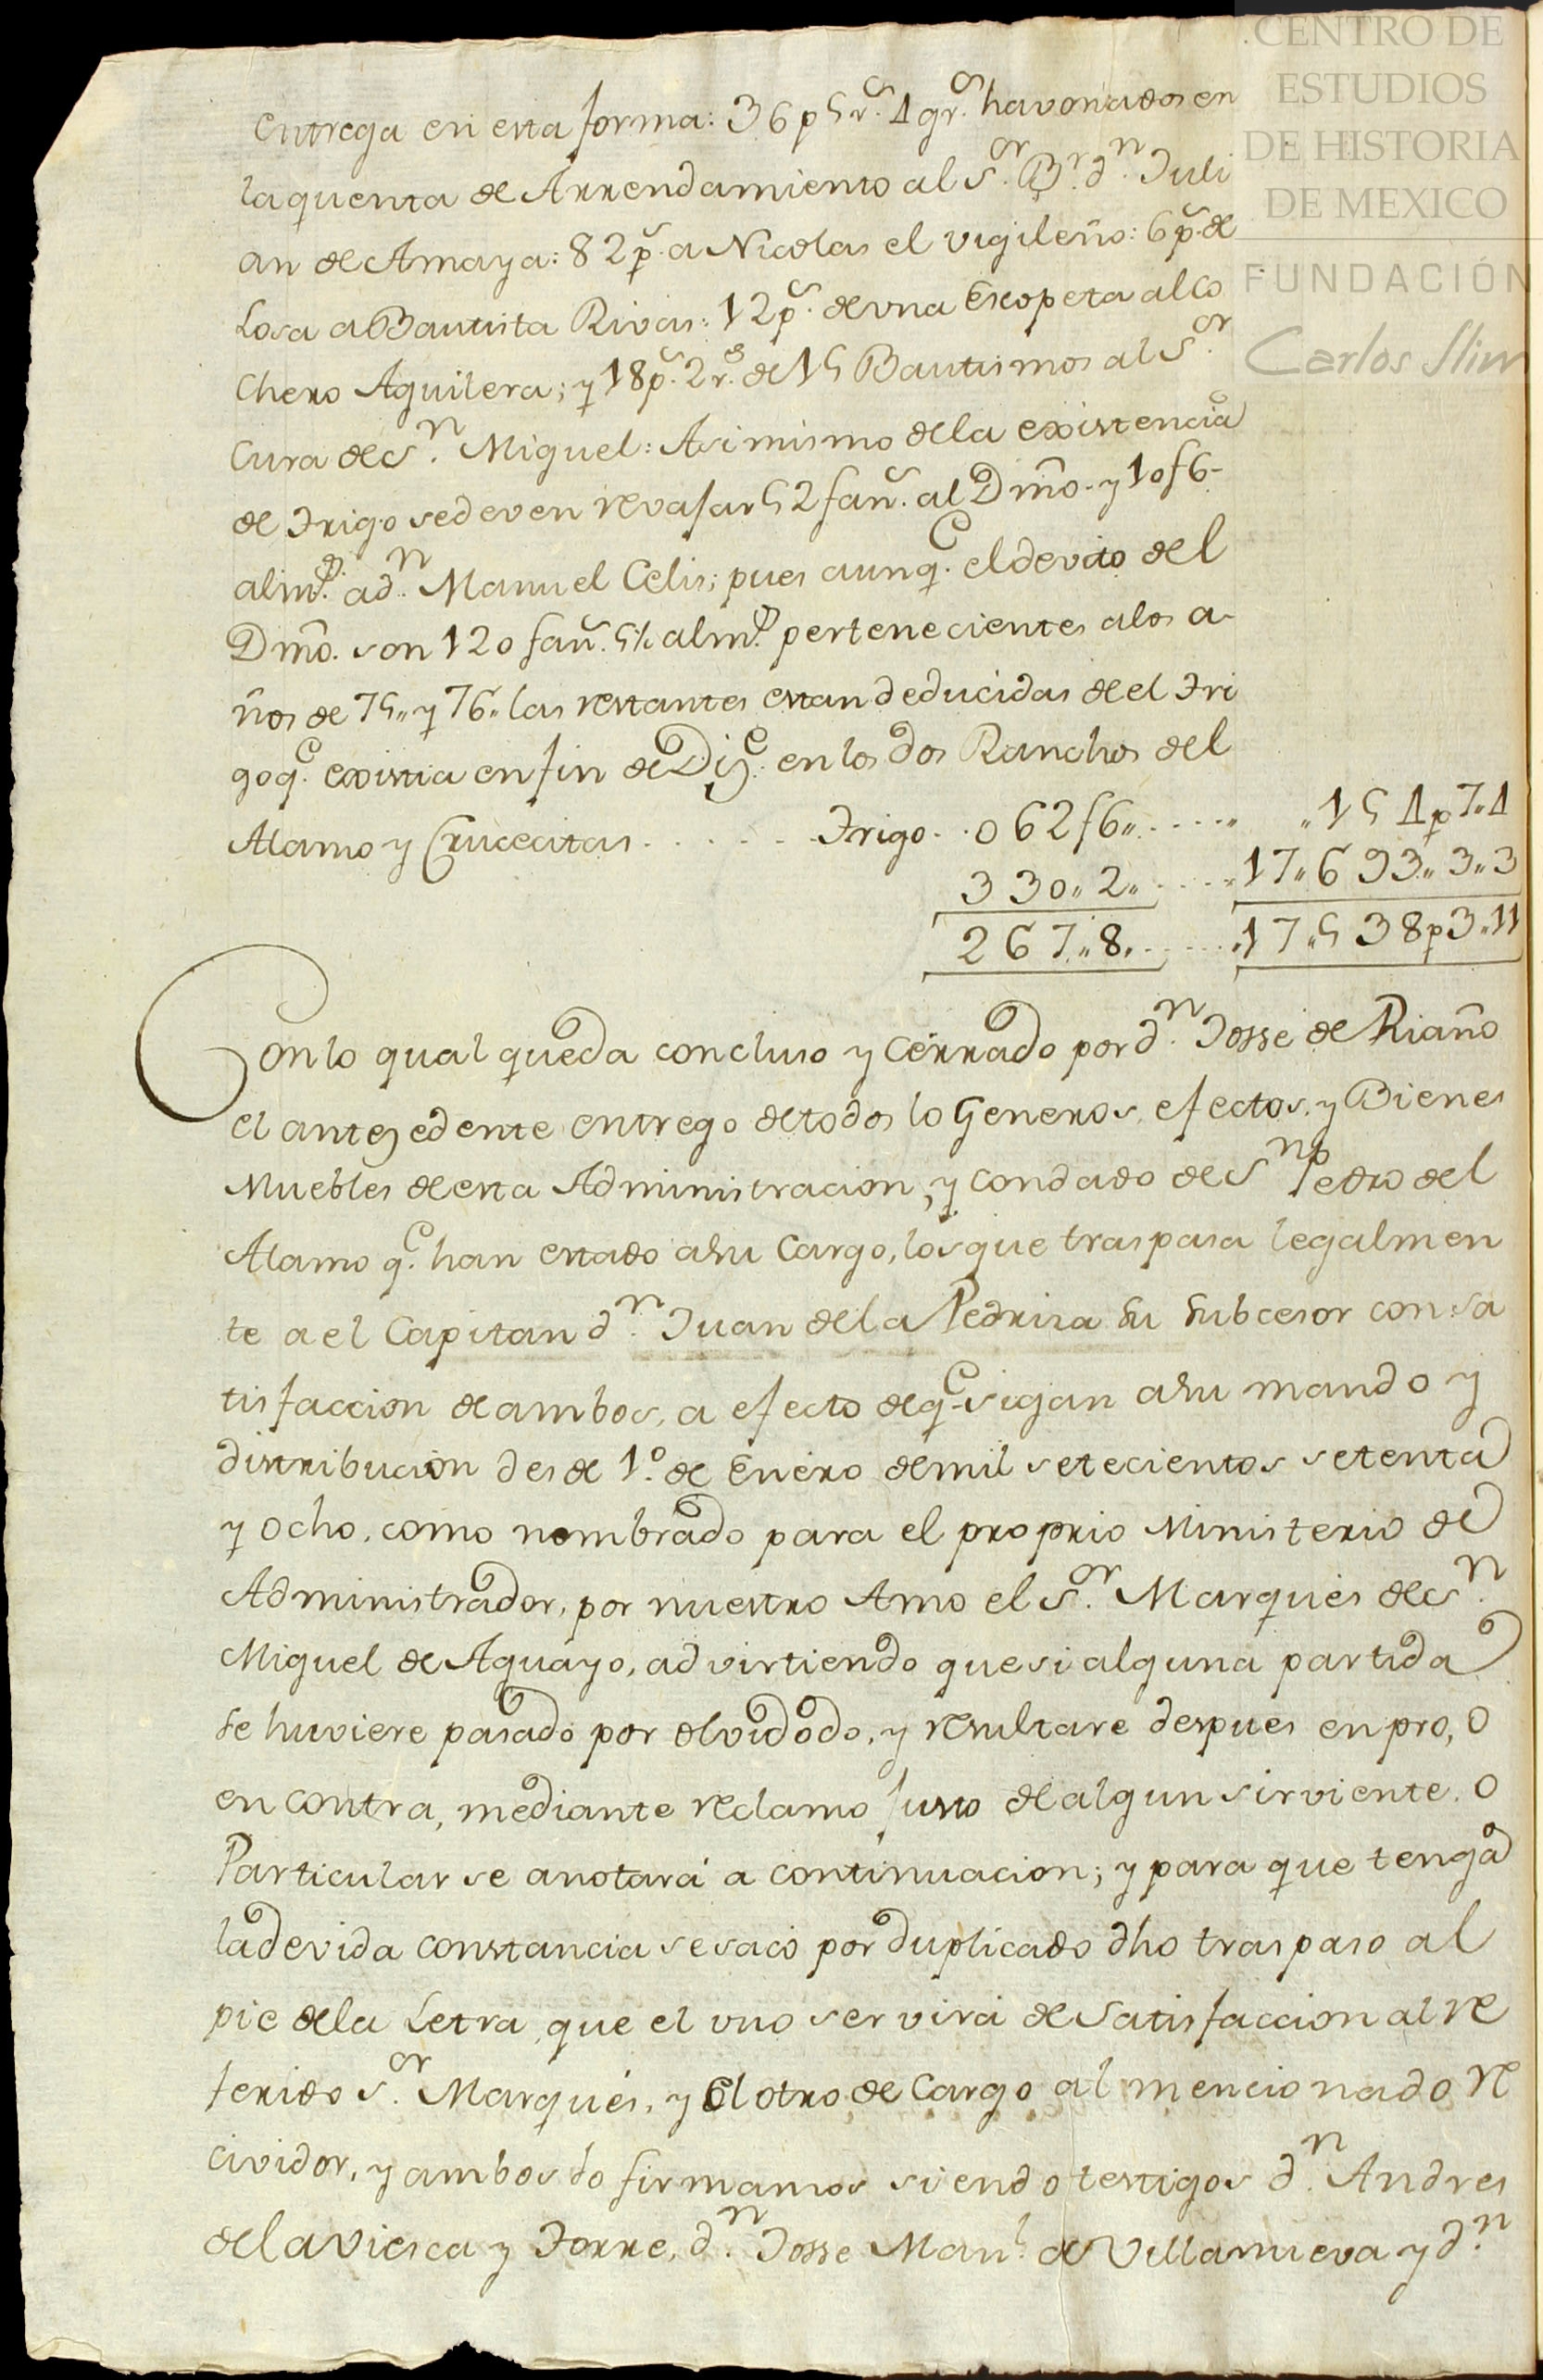 CENTRO DE
ESTUDIOS
DE HISTORIA
DE MEXICO
FUNDACIÓN
Carlos Slim
entrega en esta forma: 36p 5rs. 4grs. havonados en
la quenta de Arrendamiento al Sor. Br. dn. Juli
an de Amaya: 82ps. a Nicolas el vigileño: 6ps. de
Losa a Bautista Rivas: 12ps. de vna Escopeta al Co
chero Aguilera; y 18ps. 2rs. de 15 Bautismos al Sor.
Cura de Sn. Miguel: Asimismo de la existencia
de Trigo se deven revajar 52 fans. al Dmô. y 10f6-
almds. a dn. Manuel Celis; pues aunqe. el devito del
Dmô. son 120 fans. 5½ almds. pertenecientes a los a-
ños de 75,, y 76,, las restantes estan deducidas de el Tri
go qe. existia en fin de Dize. en los dos Ranchos del
Alamo y Crucecitas . . . . . . Trigo . . 062f6,, . . . . ,, ,,154p7,,4
330,,2,, . . . . ,,17,,693,,3,,3
267,,8,, . . . . ,,17,,538p3,,11
Con lo qual queda concluso y cerrado por dn. Josse de Riaño
el antezedente entrego de todos lo Generos, efectos, y Bienes
Muebles de esta Administracion, y Condado de Sn Pedro del
Alamo qe. han estado a su Cargo, los que traspasa legalmen
te a el Capitan dn. Juan de la Pedriza su subcesor con sa
tisfaccion de ambos, a efecto de qe. sigan a su mando y
distribucion desde 1º. de Enero de mil setecientos setenta
y ocho, como nombrado para el proprio Ministerio de
Administrador, por nuestro Amo el Sor. Marques de Sn.
Miguel de Aguayo, advirtiendo que si alguna partida
se huviere pasado por olvidodo, y resultare despues en pro, o
en contra, mediante reclamo justo de algun sirviente, o
Particular se anotará a continuacion; y para que tenga
la devida constancia se sacó por duplicado dho traspaso al
pie de la Letra, que el vno servirá de Satisfaccion al re
ferido Sor. Marqués, y el otro de Cargo al mencionado re
cividor, y ambos lo firmamos siendo testigos dn. Andres
de la Viesca y Torre, dn. Josse Manl. de Villanueva y dn.